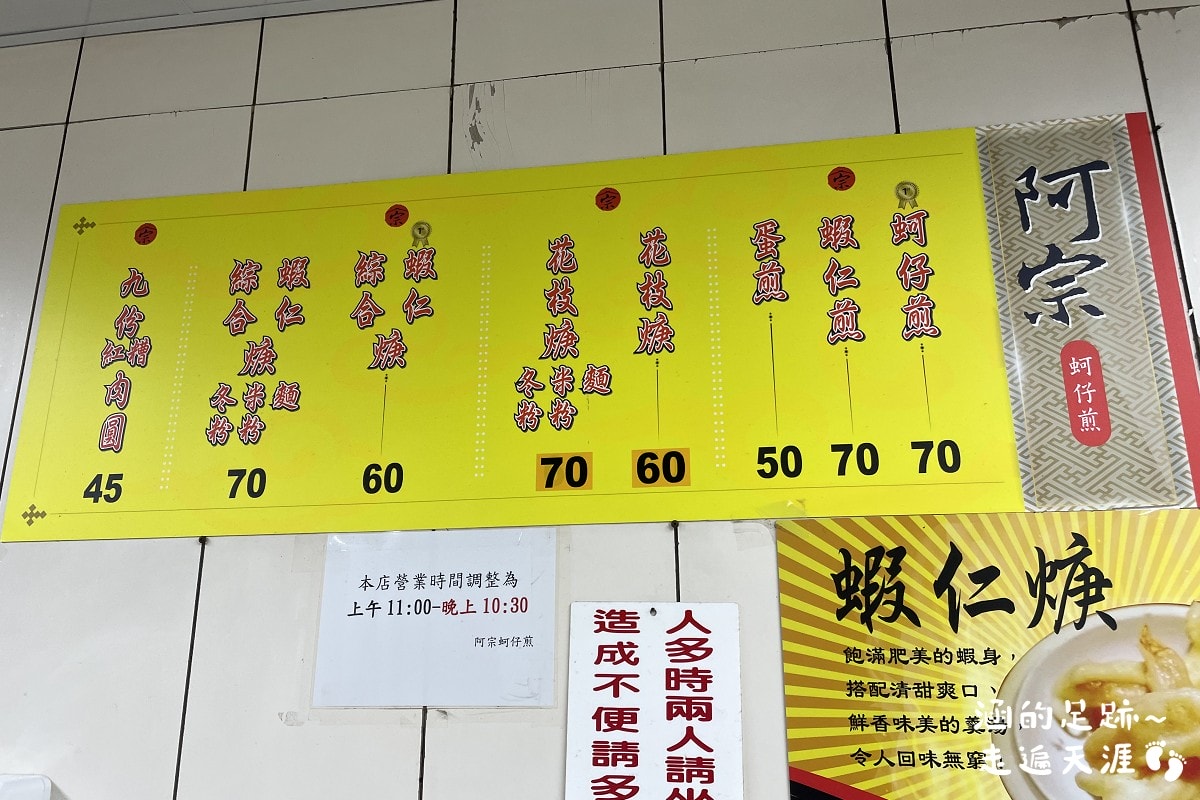 阿宗
蚵仔煎
宗
蚵仔煎
70
蝦仁煎
70
蛋煎
50
宗
花枝焿
60
花枝焿
麵
米粉
冬粉
70
宗
蝦仁
綜合
焿
60
蝦仁
綜合
焿
麵
米粉
冬粉
70
宗
九份
紅糟
肉圓
45
本店營業時間調整為
上午11:00-晚上10:30
阿宗蚵仔煎
人多時兩人請坐
造成不便請多
蝦仁焿
飽滿肥美的蝦身，
搭配清甜爽口、
鮮香味美的羹湯，
令人回味無窮。
涵的足跡~
走遍天涯